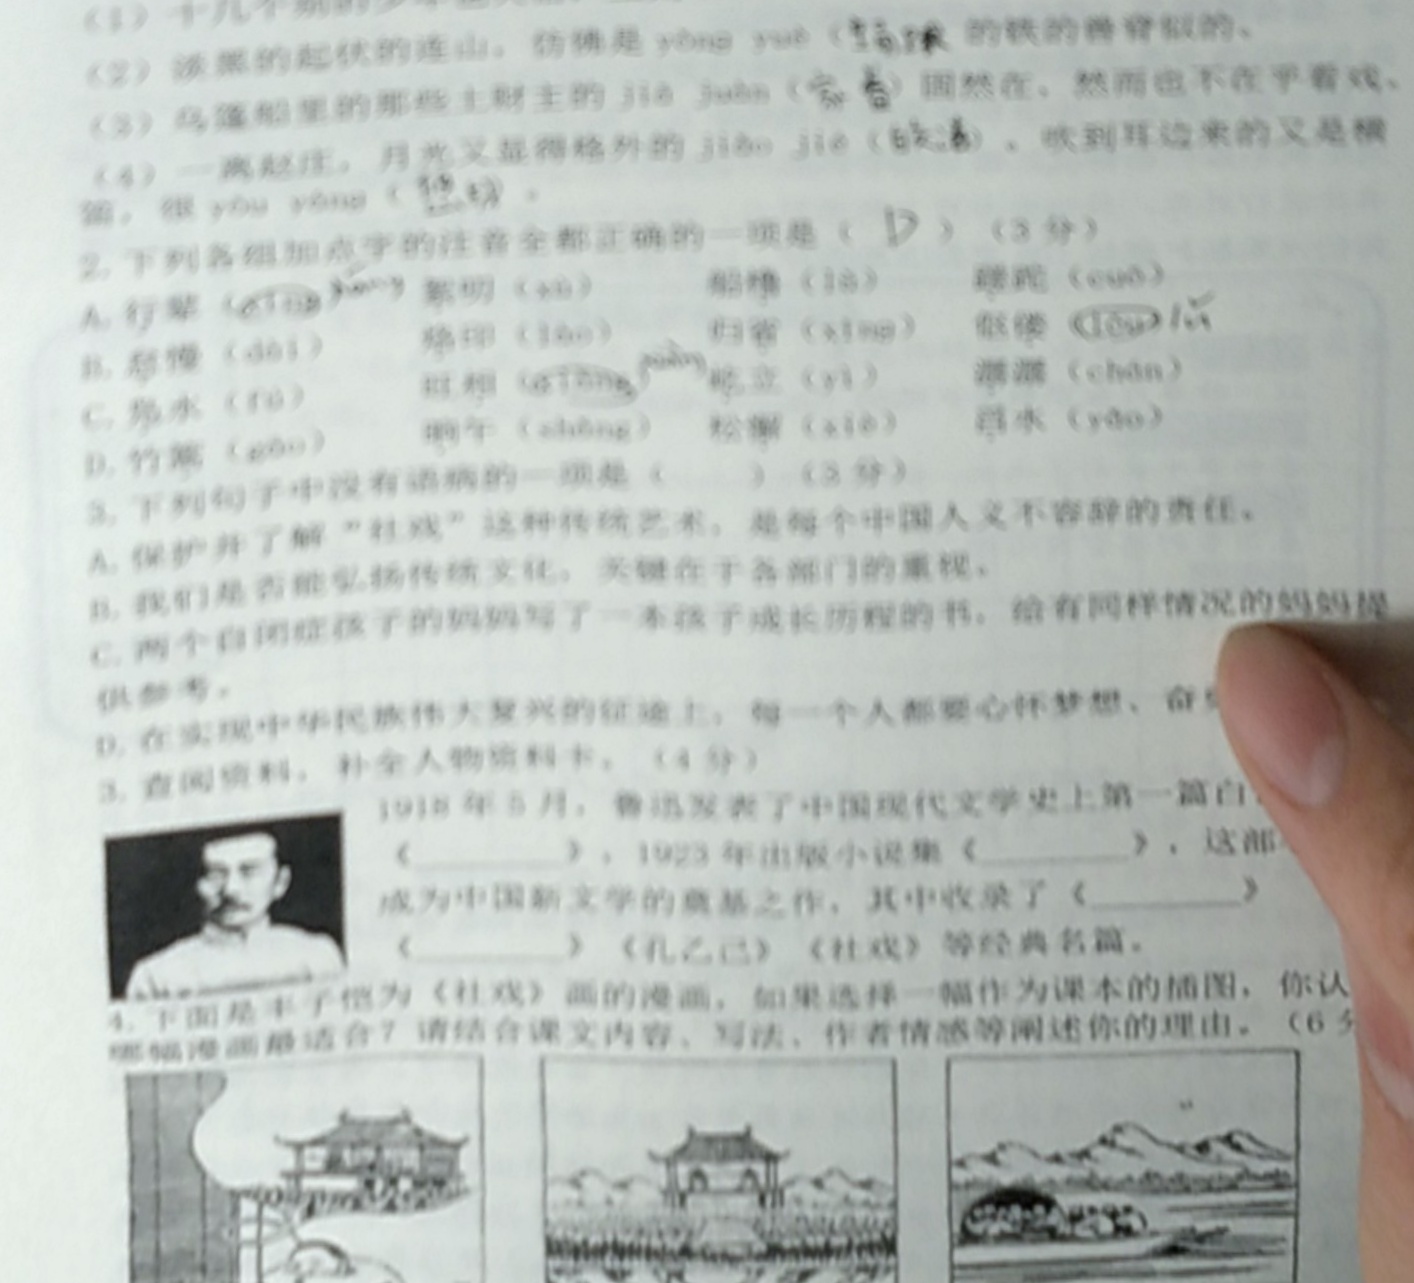 (2) 淡黑的起伏的连山，仿佛是 yǒng yuè（踊跃 的铁的兽脊似的、
(3) 乌篷船里的那些土财主的 jiā juàn（家眷）固然在，然而也不在乎看戏、
(4) 一离赵庄，月光又显得格外的 jiǎo jié（皎洁）。吹到耳边来的又是横
笛，很 yōu yáng（悠扬）。
2. 下列各组加点字的注音全都正确的一项是（ D ）（3 分）
A. 行辈（xíng） háng 絮明（xù） 船橹（lǔ） 蹉跎（cuō）
B. 怠慢（dài） 烙印（lào） 归省（xǐng） 伛偻（lóu） lǚ
C. 凫水（fú） 屹立（yì） 潺潺（chán）
D. 竹篙（gāo） 晌午（shǎng） 松懈（xiè） 舀水（yǎo）
3. 下列句子中没有语病的一项是（ ）（3 分）
A. 保护并了解“社戏”这种传统艺术，是每个中国人义不容辞的责任。
B. 我们是否能弘扬传统文化，关键在于各部门的重视。
C. 两个自闭症孩子的妈妈写了一本孩子成长历程的书，给有同样情况的妈妈提
供参考。
D. 在实现中华民族伟大复兴的征途上，每一个人都要心怀梦想、奋
3. 查阅资料，补全人物资料卡。（4 分）
1918 年 5 月，鲁迅发表了中国现代文学史上第一篇白
《________》，1923 年出版小说集《________》，这部
成为中国新文学的奠基之作，其中收录了《________》
《________》《孔乙己》《社戏》等经典名篇。
4. 下面是丰子恺为《社戏》画的漫画，如果选择一幅作为课本的插图，你认
哪幅漫画最适合？请结合课文内容、写法、作者情感等阐述你的理由。（6 分